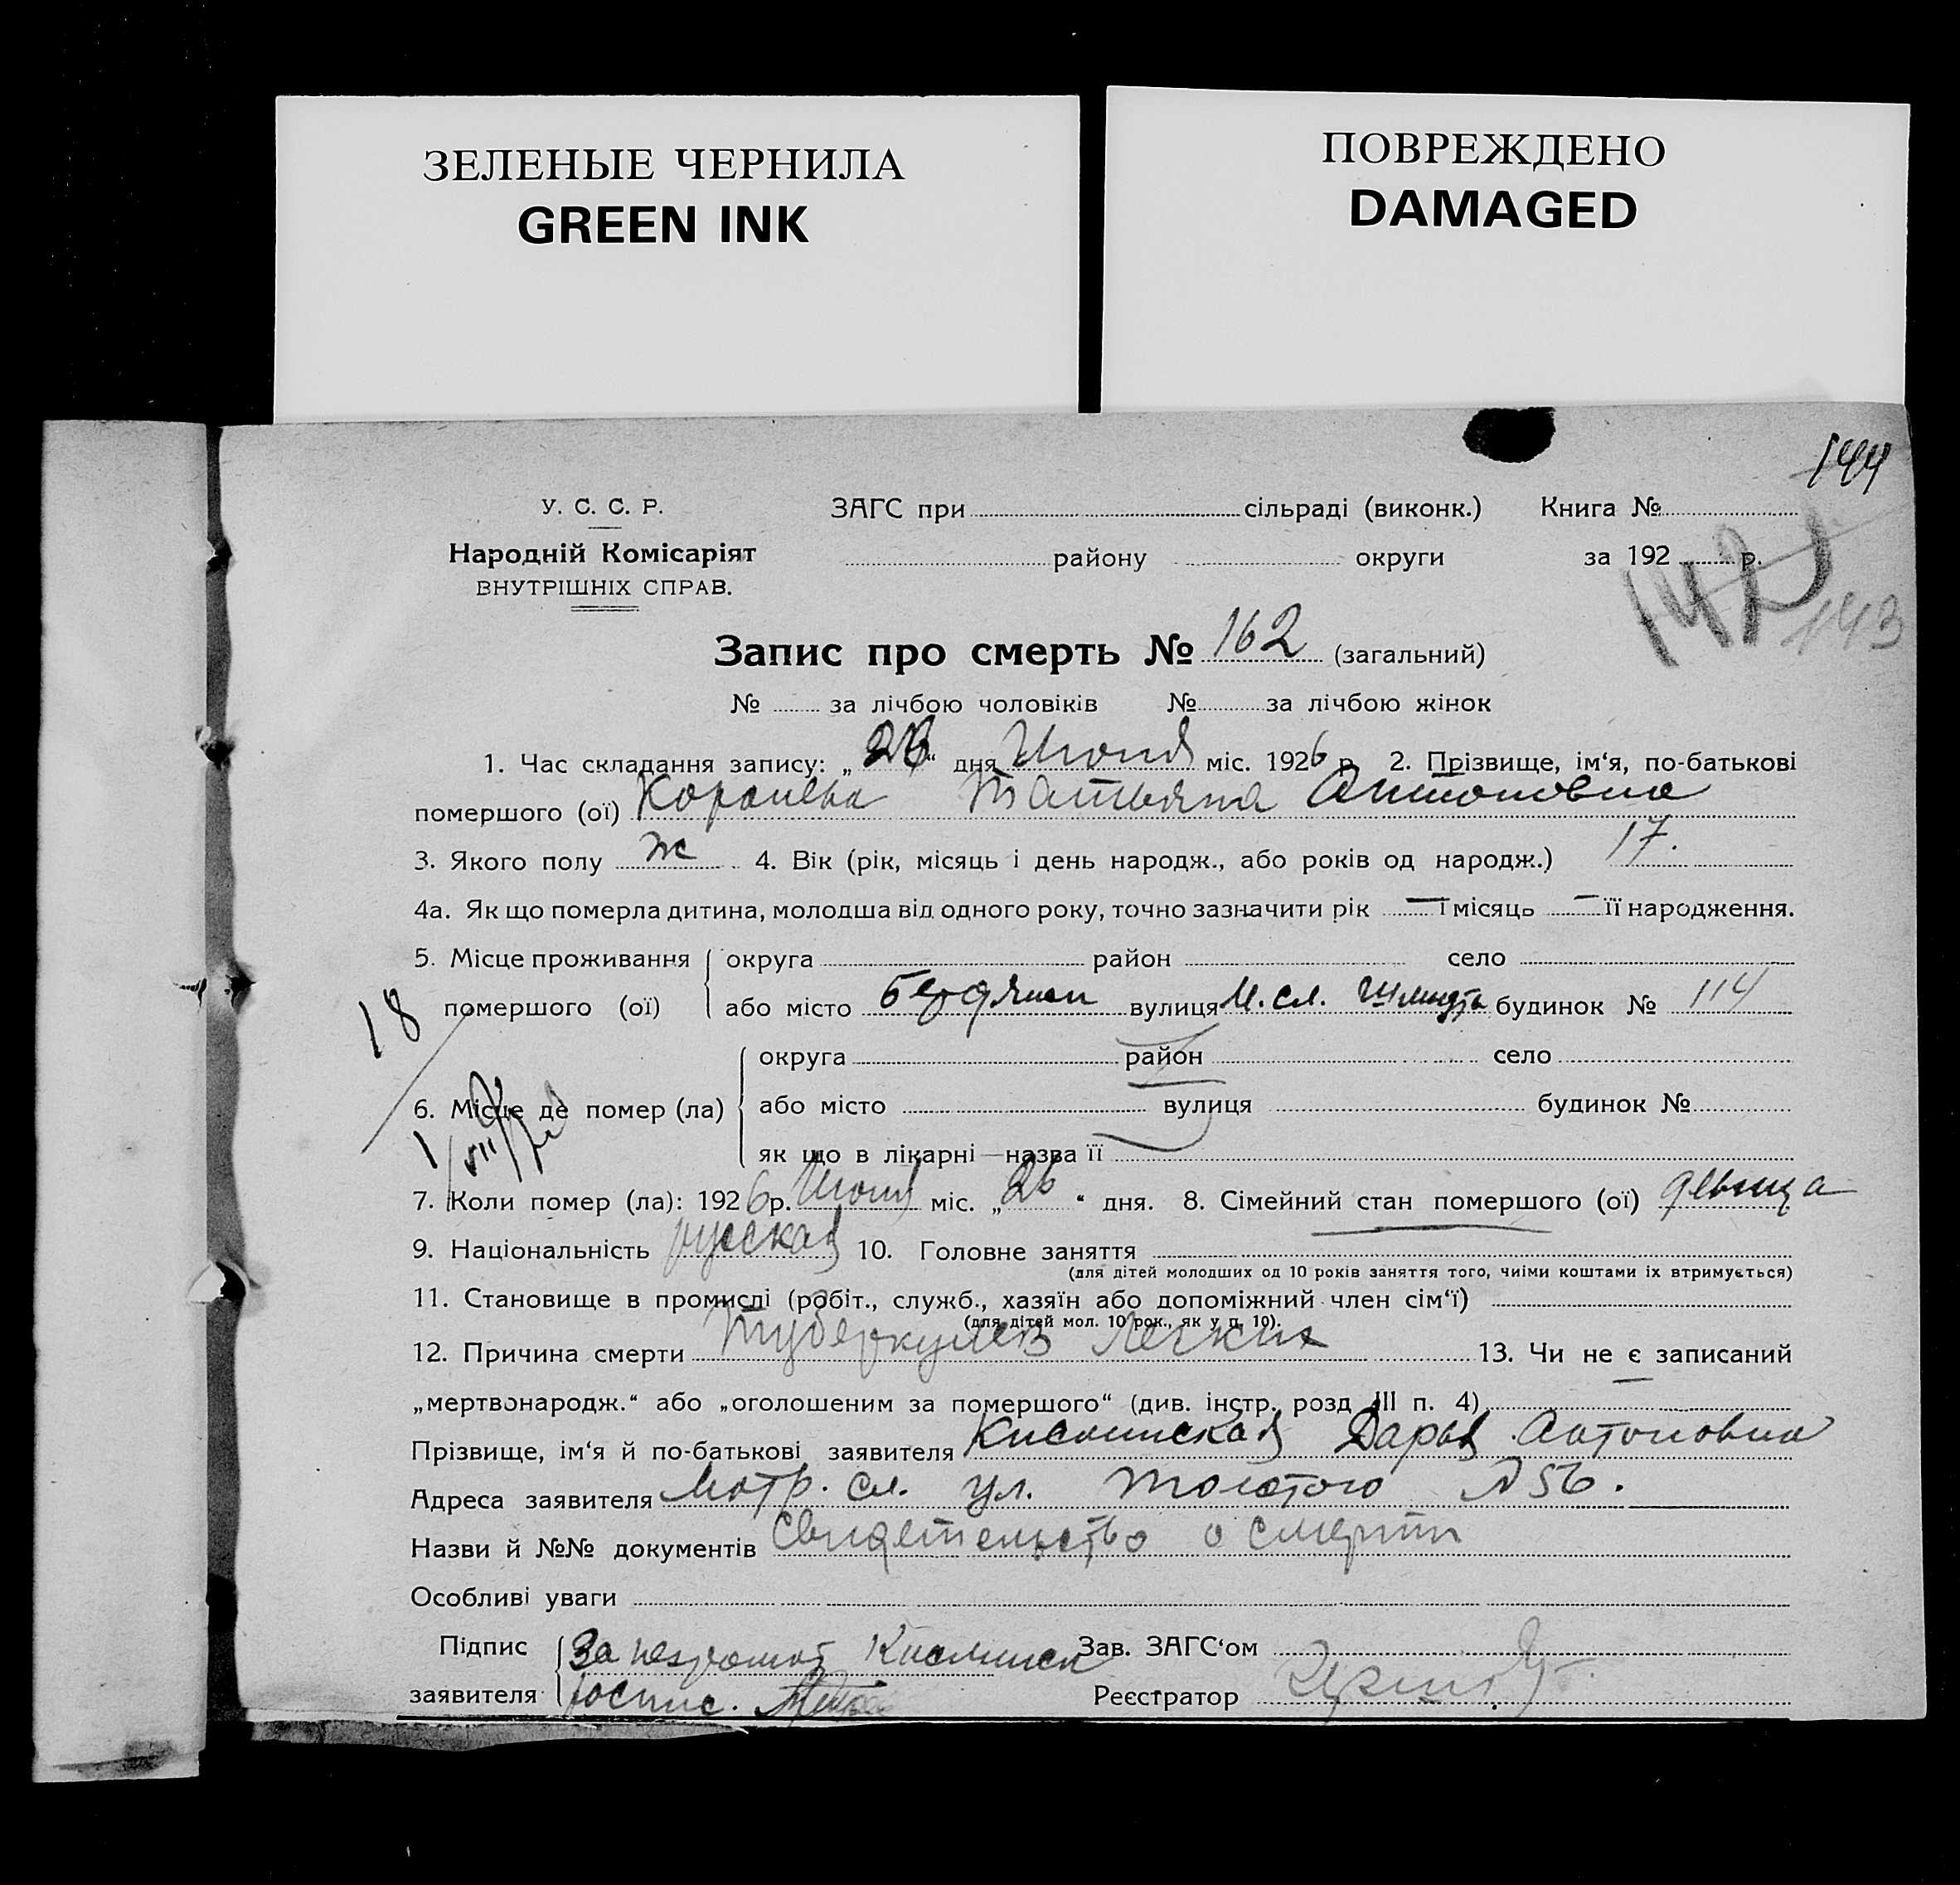 ЗЕЛЕНЫЕ ЧЕРНИЛА
GREEN INK
ПОВРЕЖДЕНО
DAMAGED
144
У. С. С. Р. ЗАГС при сільраді (виконк.) Книга №
Народній Комісаріят району округи за 192 р.
ВНУТРІШНІХ СПРАВ.
142 143
Запис про смерть № 162 (загальний)
№ за лічбою чоловіків № за лічбою жінок
1. Час складання запису: „ “ дня Июня міс. 1926 р. 2. Прізвище, ім‘я, по-батькові
помершого (ої) Татьяна Антоновна
3. Якого полу ж 4. Вік (рік, місяць і день народж., або років од народж.) 17.
4а. Як що померла дитина, молодша від одного року, точно зазначити рік — і місяць — її народження.
5. Місце проживання округа район село
помершого (ої) або місто Бердянск вулиця М. сл. Шмидта будинок № 114
18
округа район село
6. Місце де помер (ла) або місто вулиця будинок №
як що в лікарні—назва її
7. Коли помер (ла): 1926 р. Июня міс. „26“ дня. 8. Сімейний стан помершого (ої) девица
9. Національність русская 10. Головне заняття
(для дітей молодших од 10 років заняття того, чиїми коштами їх втримується)
11. Становище в промислі (робіт., служб., хазяїн або допоміжний член сім‘ї)
(для дітей мол. 10 рок., як у п. 10).
12. Причина смерти Туберкулез легких 13. Чи не є записаний
„мертвонародж.“ або „оголошеним за помершого“ (див. інстр. розд III п. 4)
Прізвище, ім‘я й по-батькові заявителя Дарья Антоновна
Адреса заявителя Матр. сл. ул. Толстого №56.
Назви й №№ документів Свидетельство о смерти
Особливі уваги
Підпис За неграмот Зав. ЗАГС‘ом
заявителя роспис. Реєстратор